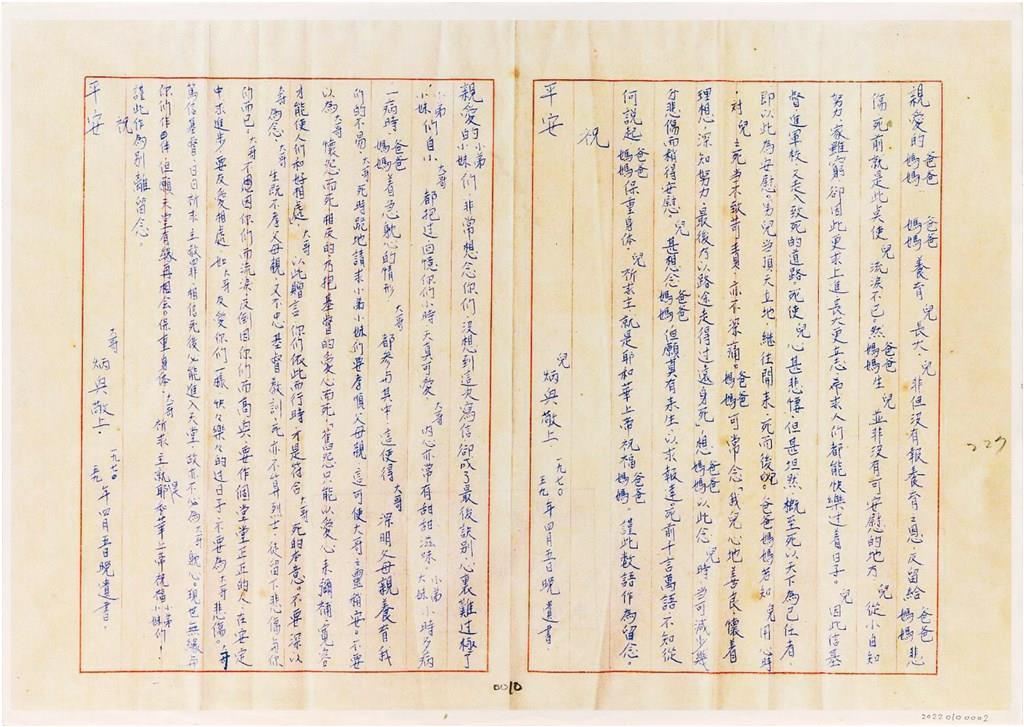 親愛的 爸爸媽媽 爸爸媽媽養育 兒長大,兒 非但沒有報養育之恩,反留給 爸爸媽媽 悲
傷,死前就是此矣使 兒 流淚不已。然 爸爸媽媽生 兒 並非沒有可安慰的地方。兒 從小自知
努力,家雖窮,卻因此更求上進,長大更立志,希求人們都能快樂过着日子。兒 因此信基
督進軍校,又走入致死的道路,死使 兒 心甚悲悽,但甚坦然,概至死以天下為己任者,
即以此為安慰。男兒當頂天立地,継往開来,死而後已。爸爸媽媽若知 兒 用心時
,对 兒 之死当不致苛責,亦不深痛。爸爸媽媽可常念「我兒心地善良,懷着
理想,深知努力,最後乃以路途走得过遠身死」,想 爸爸媽媽以此念 兒 時,当可減少幾
分悲傷而稍得安慰。兒 甚想念 爸爸媽媽,但願真有来生,以求報達,死前千言萬語不知從
何說起,爸爸媽媽保重身体。兒 祈求主,就是耶和華上帝祝福 爸爸媽媽。僅此數語作為留念。
祝
平安
兒 炳興敬上。一九七〇 五九年四月五日晚遺書。
親愛的小弟小妹們,非常想念你們,沒想到這次寫信卻成了最後訣別,心裏難过極了
,小弟小妹們自小 大哥 都抱过,回憶你們小時天真可愛,大哥 内心亦常有甜甜滋味。小弟小妹小時多病
,一病時,爸爸媽媽着急躭心的情形,大哥 都參与其中,這使得 大哥 深明父母親養育我
們的不易,大哥 死時跪地請求小弟小妹們要孝順父母親,這可使大哥之靈稍安。不要
以為 大哥 懷怨而死,相反的,乃抱基督的愛心而死,舊怨只能以愛心来彌補,寬容
才能使人們和好相處,大哥 以此贈言,你們依此而行時,才是符合 大哥 死的本意。不要深以
大哥 為念,大哥 生既不孝父母親,又不忠基督教訓,死亦不算烈士,徒留下悲傷与你
們而已。大哥不應因你們而流淚,反倒因你們而高興,要作個堂堂正正的人,在安定
中求進步,要友愛相處,如 大哥 友愛你們一樣,快快樂樂的过日子,不要為 大哥 悲傷。大哥
篤信基督,日日祈求主赦罪,相信死後必能進入天堂,故亦不必為 大哥 躭心。現世無緣与
你們作伴,但願天堂有緣再相会。保重身体,大哥 祈求主就是耶和華上帝祝福小弟小妹們!
謹此作為别離留念。
祝
平安
大哥 炳興敬上。一九七〇 五九年四月五日晚遺書。
227
0010
20220100002